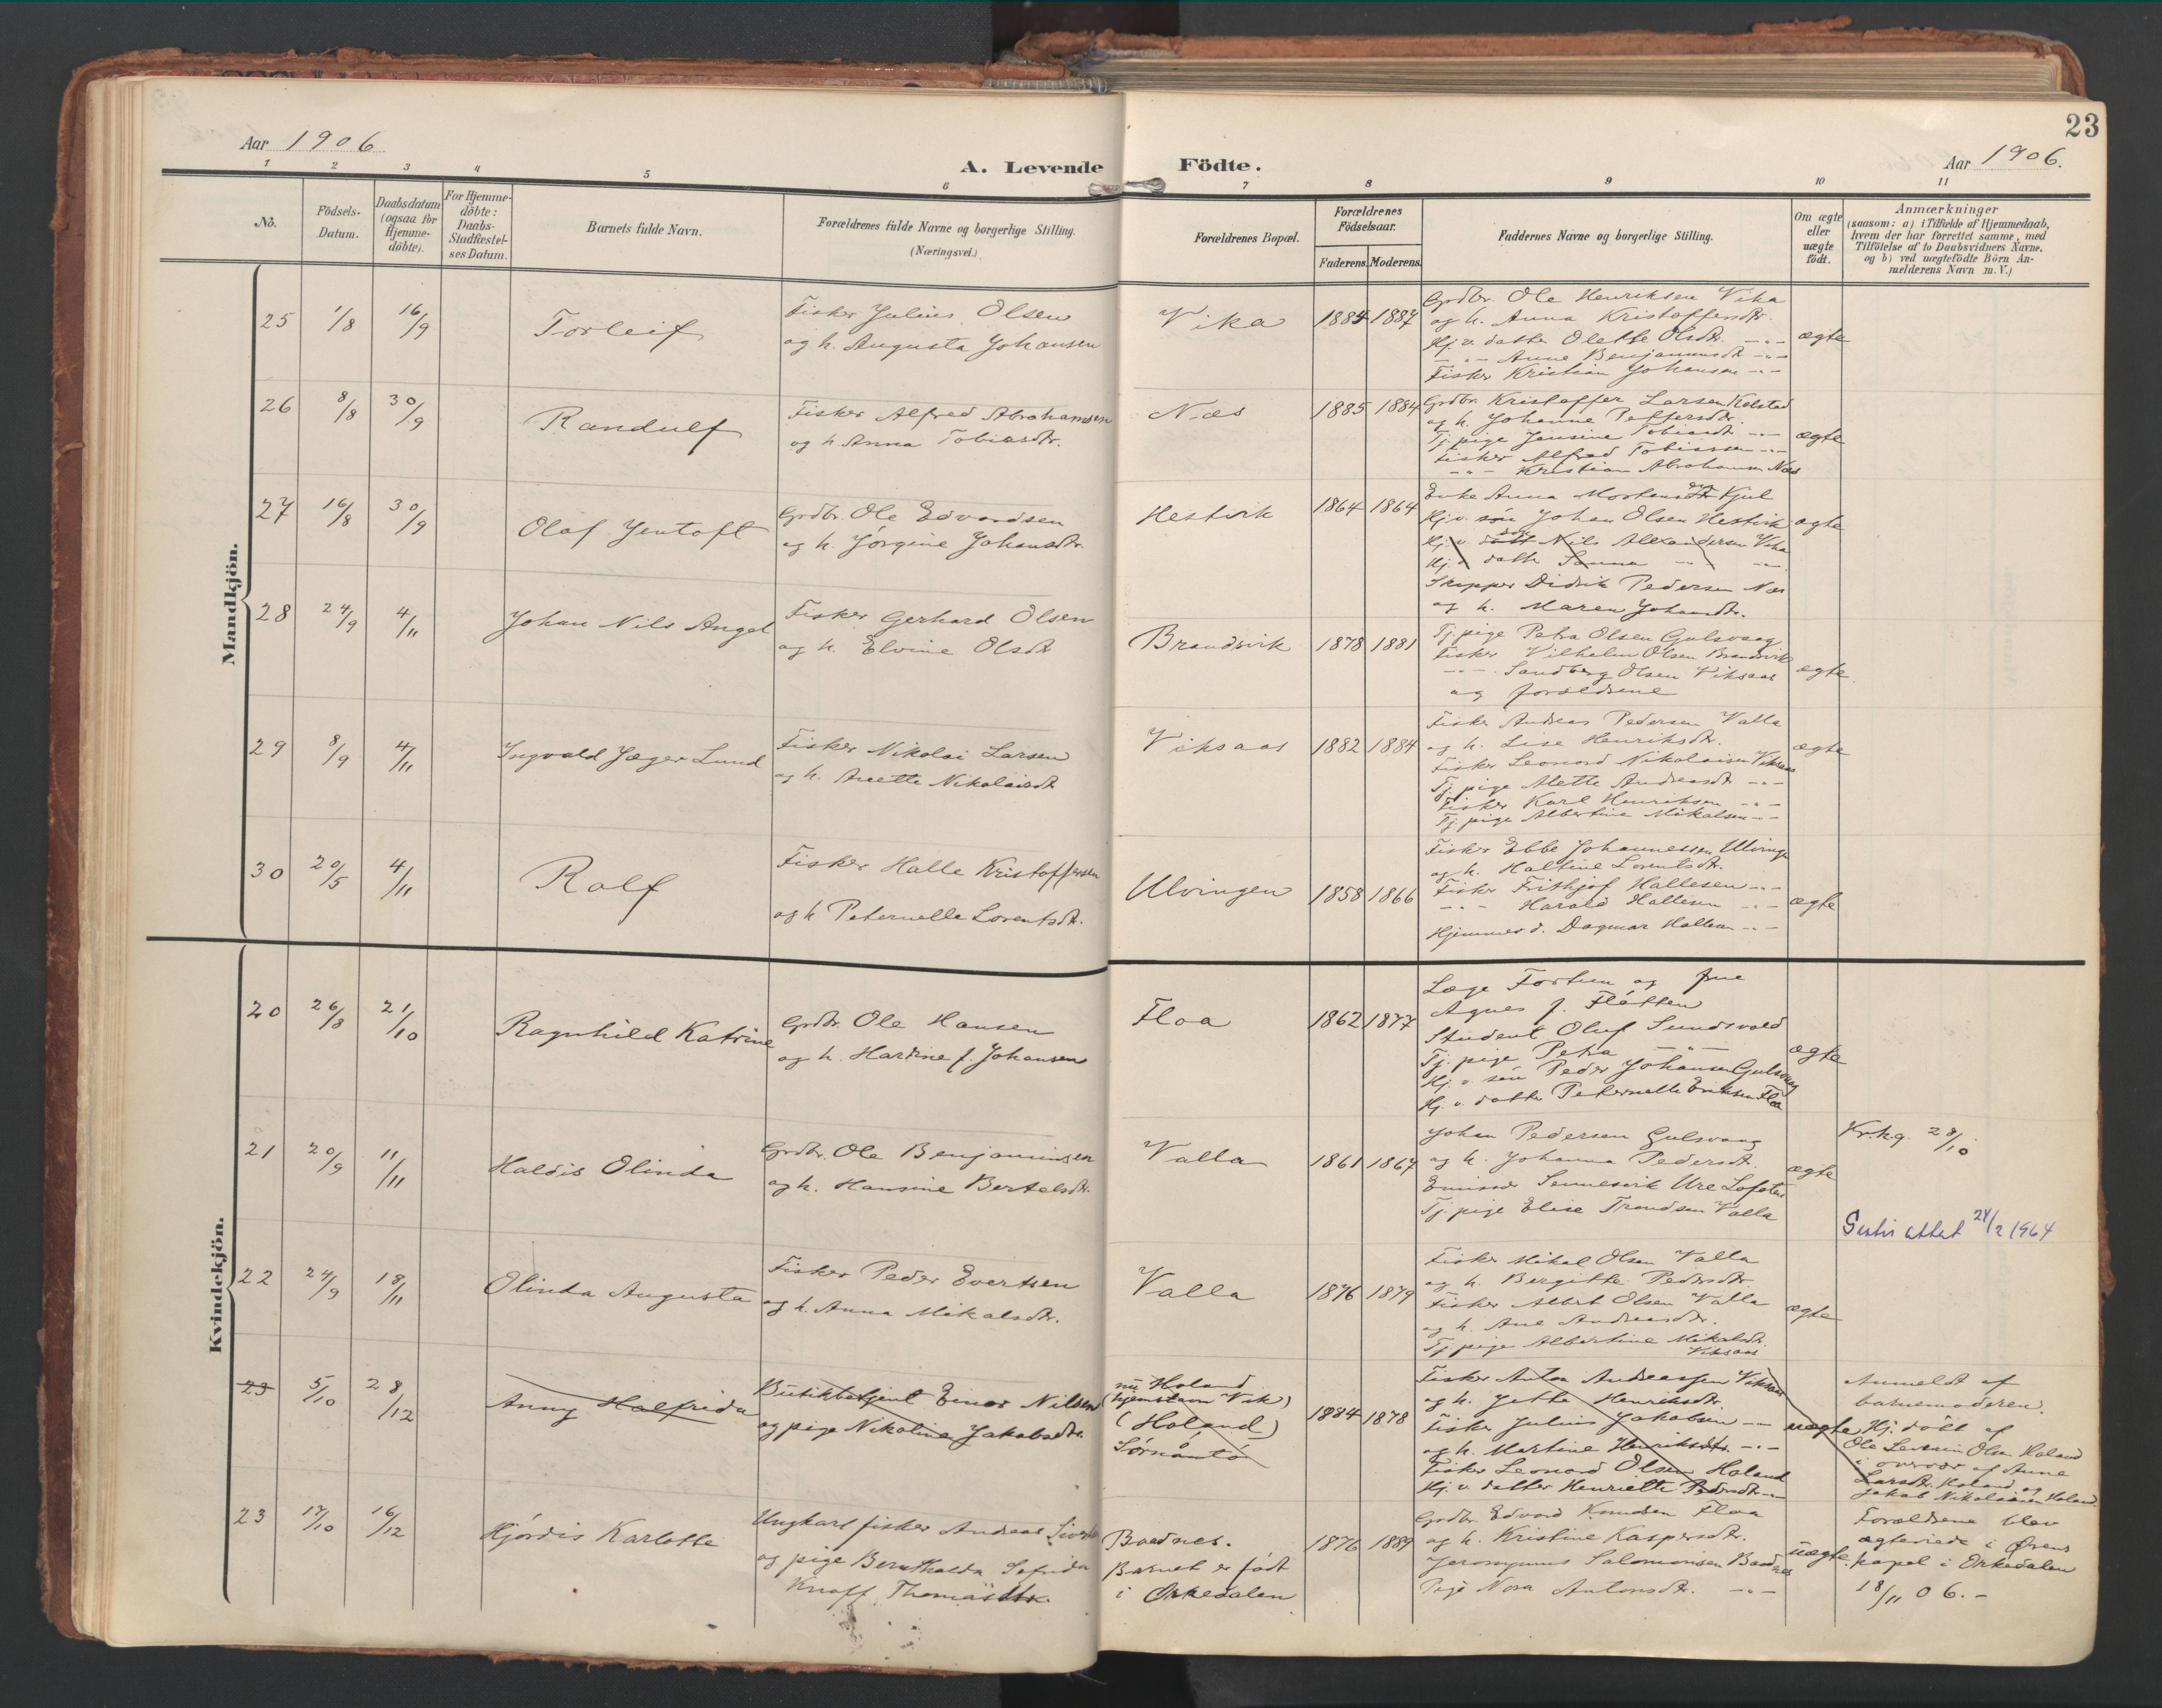 23
Aar 1906
A. Levende Födte.
Aar 1906.
1 2 3 4 5 6 7 8 9 10 11
No.
Födsels-
Datum.
Daabsdatum
(ogsaa for
Hjemme-
döbte).
For Hjemme-
döbte:
Daabs-
Stadfæstel-
ses Datum.
Barnets fulde Navn.
Forældrenes fulde Navne og borgerlige Stilling.
(Næringsvei.)
Forældrenes Bopæl.
Forældrenes
Födselsaar.
Faderens. Moderens.
Faddernes Navne og borgerlige Stilling.
Om ægte
eller
uægte
födt.
Anmærkninger
(saasom: a) i Tilfælde af Hjemmedaab,
hvem der har forrettet samme, med
Tilföielse af to Daabsvidners Navne.
og b) ved uægtefödte Börn An-
melderens Navn m. V.)
Mandkjön.
25 1/8 16/9 Torleif
Fisker Julius Olsen
og h. Augusta Johansen
Vika 1884 1887
Grdbr. Ole Henriksen Vika
og h. Anna Kristoffersdtr.
Hj. v. datter Olette Olsdtr. -"-
-"- Anne Benjaminsdtr -"-
Fisker Kristian Johansen -"-
ægte
26 8/8 30/9 Randulf
Fisker Alfred Abrahamsen
og h. Anna Tobiasdtr.
Næs 1885 1884
Grdbr. Kristoffer Larsen Kolstad
og h. Johanne Pettersdtr.
Tj. pige Jensine Tobiasdtr -"-
Fisker Alfred Tobiassen -"-
-"- Kristian Abrahamsen Næs
ægte
27 16/8 30/9 Olaf Jentoft
Grdbr. Ole Edvardsen
og h. Jörgine Johansdtr.
Hestvik 1864 1864
Enke Anna Mortensdtr Kjul
Hj. v. sön Johan Olsen Hestvik
Hj. v. Nils Alexandersen Vika
Hj. v. datter Sanna -"- -"-
Skipper Didrik Pedersen Næs
og h. Maren Johansdtr.
ægte
28 24/9 4/11 Johan Nils Angel
Fisker Gerhard Olsen
og h. Elvine Olsdtr
Brandsvik 1878 1881
Tj. pige Petra Olsen Gulsvaag
Fisker Vilhelm Olsen Brandsvik
-"- Sandberg Olsen Viksaas
og forældrene
ægte.
29 8/9 4/11 Ingvald Jæger Lund
Fisker Nikolai Larsen
og h. Anette Nikolaisdtr
Viksaas 1882 1884
Fisker Andreas Pedersen Valla
og h. Lise Henriksdtr.
Fisker Leonord Nikolaisen Viksaas
Tj. pige Mette Andreasdtr -"-
Fisker Karl Henriksen -"-
Tj. pige Albertine Mikalsen -"-
ægte
30 20/5 4/11 Rolf
Fisker Halle Kristoffersen
og h Peternelle Lorentsdtr.
Ulvingen 1858 1866
Fisker Ebbe Johannessen Ulvinge
og h. Haltine Lorentsdtr.
Fisker Frithjof Hallesen -"-
-"- Harald Hallesen -"-
Hjemmev. d. Dagmar Hallesen -"-
ægte
Kvindekjön.
20 26/8 21/10 Ragnhild Katrine
Grdbr. Ole Hansen
og h. Hardine f. Johansen
Floa 1862 1877
Læge Fortun og frue
Agnes f. Flátten
Student Oluf Sundsvold
Tj. pige Petra -"-
Hj. v. sön Peder Johansen Gulsvaag
Hj. v. datter Peternelle Eriksen Floa
ægte
21 20/9 11/11 Haldis Olinda
Grdbr. Ole Benjaminsen
og h. Hansine Bertelsdtr.
Valla 1861 1867
Johan Pedersen Gulsvaag
og h. Johanna Pedersdtr.
Emissær Sennesvik Ure Lofoten
Tj. pige Elise Trondsen Valla
ægte
Kr.hg. 28/10
22 24/9 18/11 Olinda Augusta
Fisker Peder Evertsen
og h. Anna Mikalsdtr.
Valla 1876 1879
Fisker Mikal Olsen Valla
og h. Bergitte Pedersdtr.
Fisker Albert Olsen Valla
og h. Ane Andreasdtr.
Tj. pige Albertine Mikalsdtr.
Viksaas
ægte
24/2 1964
23 5/10 28/12 Anny Halfrida
Butikbetjent Einar Nilsen
og pige Nikoline Jakobsdtr.
nu Holand
(hjemstavn Vik)
(Holand)
1884 1878
Fisker Anton Andreassen Viksaas
og h. Jette Henriksdtr.
Fisker Julius Jakobsen -"-
og h. Martine Henriksdtr. -"-
Fisker Leonord Olsen Holand
Hj. v. datter Henriette Pedersdtr -"-
uægte
Anmeldt af
barnemoderen.
Hj. döbt af
Ole Severin Olsen Holand
i overvær af Anne
Larsdtr. Holand og
Jakob Nikolaisen Holand
23 17/10 16/12 Hjördis Karlotte
Ungkarl fisker Andreas
og pige Bernthalda Sofrida
Knoff Thomäsdtr.
Baadnes.
Barnet er födt
i Orkedalen
1876 1889
Grdbr. Edvard Knudsen Floa
og h. Kristine Kaspersdtr.
Jeronymus Salomonsen Baadnes
Pige Nora Antonsdtr. -"-
uægte.
Forældrene blev
ægteviede i Örens
kapel i Orkedalen
18/11 06.-